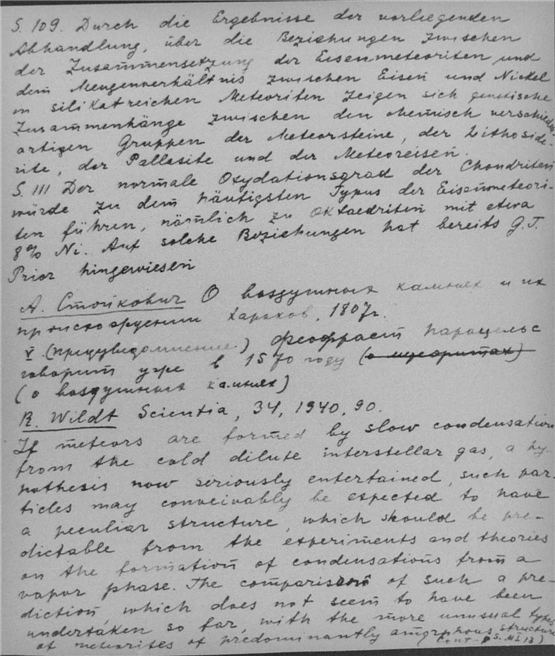 S. 109. Durch die Ergebnisse der vorliegenden
Abhandlung, über die Beziehungen zwischen
der Zusammensetzung der Eisenmeteoriten und
dem Mengenverhältnis zwischen Eisen und Nickel
in silikatreichen Meteoriten zeigen sich genetische
Zusammenhänge zwischen den chemisch verschieden-
artigen Gruppen der Meteorsteine, der Lithoside-
rite, der Pallasite und der Meteoreisen.
S. 111 Der normale Oxydationsgrad der Chondriten
würde zu dem häufigsten Typus der Eisenmeteori-
ten führen, nämlich zu Oktaedriten mit etwa
8% Ni. Auf solche Beziehungen hat bereits G. T.
Prior hingewiesen
А. Стойкович О воздушных камнях и их
происхождении Харьков, 1807г.
V (предуведомление) Феофраст Парацельс
говорит уже в 1570 году (о метеоритах)
(о воздушных камнях)
R. Wildt Scientia, 34, 1940, 90.
If meteors are formed by slow condensation
from the cold dilute interstellar gas, a hy-
pothesis now seriously entertained, such par-
ticles may conceivably be expected to have
a peculiar structure, which should be pre-
dictable from the experiments and theories
on the formation of condensations from a
vapor phase. The comparison of such a pre-
diction which does not seem to have been
undertaken so far, with the more unusual types
of meteorites of predominantly amorphous structure